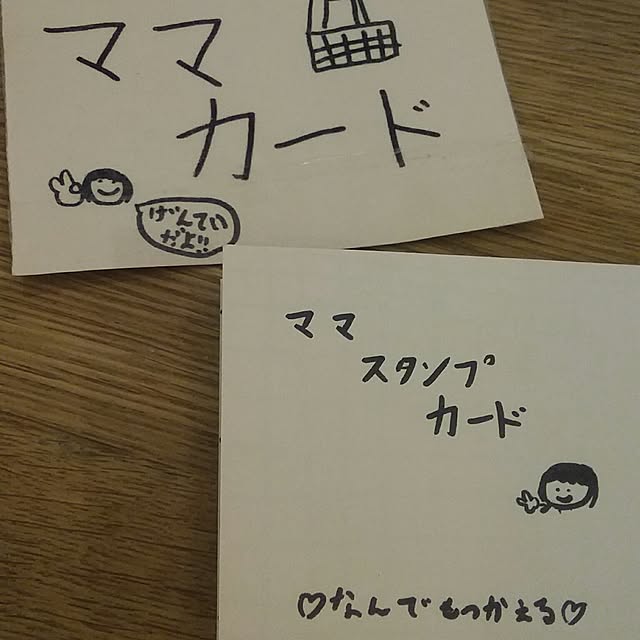 ママ
カード
げんてい
だよ!!
ママ
スタンプ
カード
♡なんでもつかえる♡